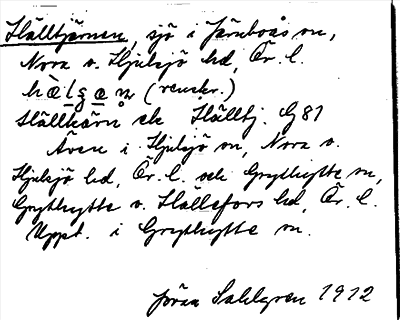 Hälltjärnen, sjö i Järnboås sn,
Nora o. Hjulsjö hd, Ör. l.
(renskr.)
Hälltiärn ek Hälltj. G81
Även i Hjulsjö sn, Nora o.
Hjulsjö hd, Ör. l. och Grythytte sn,
Grythytte o. Hällefors hd, Ör. l.
Uppt. i Grythytte sn.
Jöran Sahlgren 1912